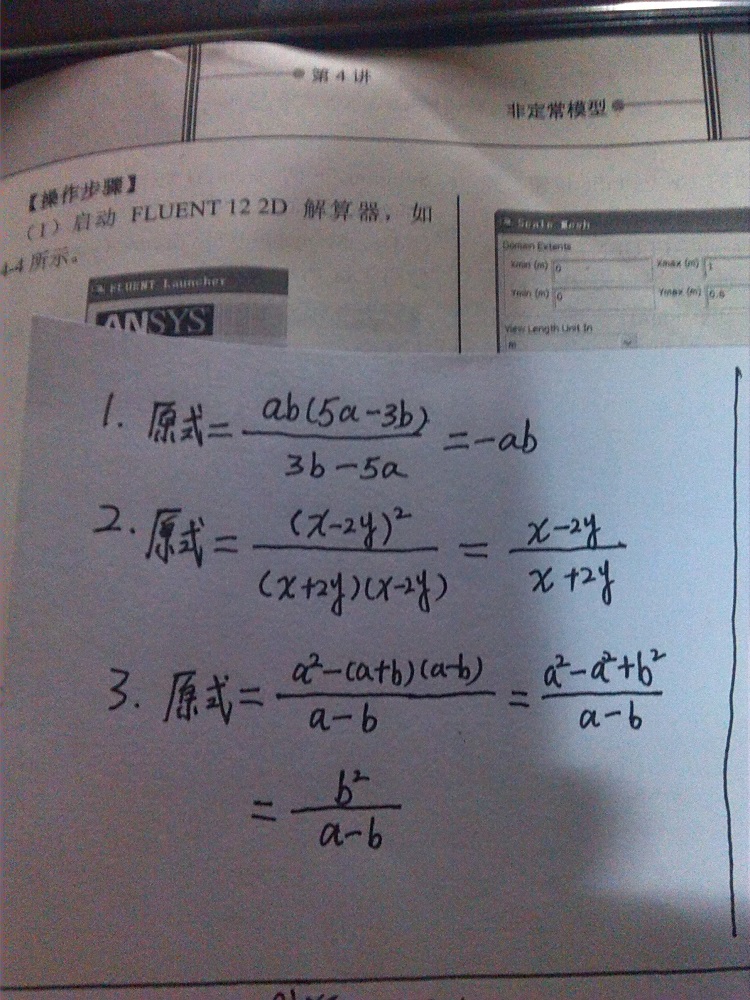 第 4 讲
非定常模型
【操作步骤】
(1) 启动 FLUENT 12 2D 解算器，如
4-4 所示。
FLUENT Launcher
ANSYS
Scale Mesh
Domain Extents
Xmin (m) 0 Xmax (m) 1
Ymin (m) 0 Ymax (m) 0.6
View Length Unit In
m
1. 原式 = \frac{ab(5a-3b)}{3b-5a} = -ab
2. 原式 = \frac{(x-2y)^2}{(x+2y)(x-2y)} = \frac{x-2y}{x+2y}
3. 原式 = \frac{a^2-(a+b)(a-b)}{a-b} = \frac{a^2-a^2+b^2}{a-b}
= \frac{b^2}{a-b}